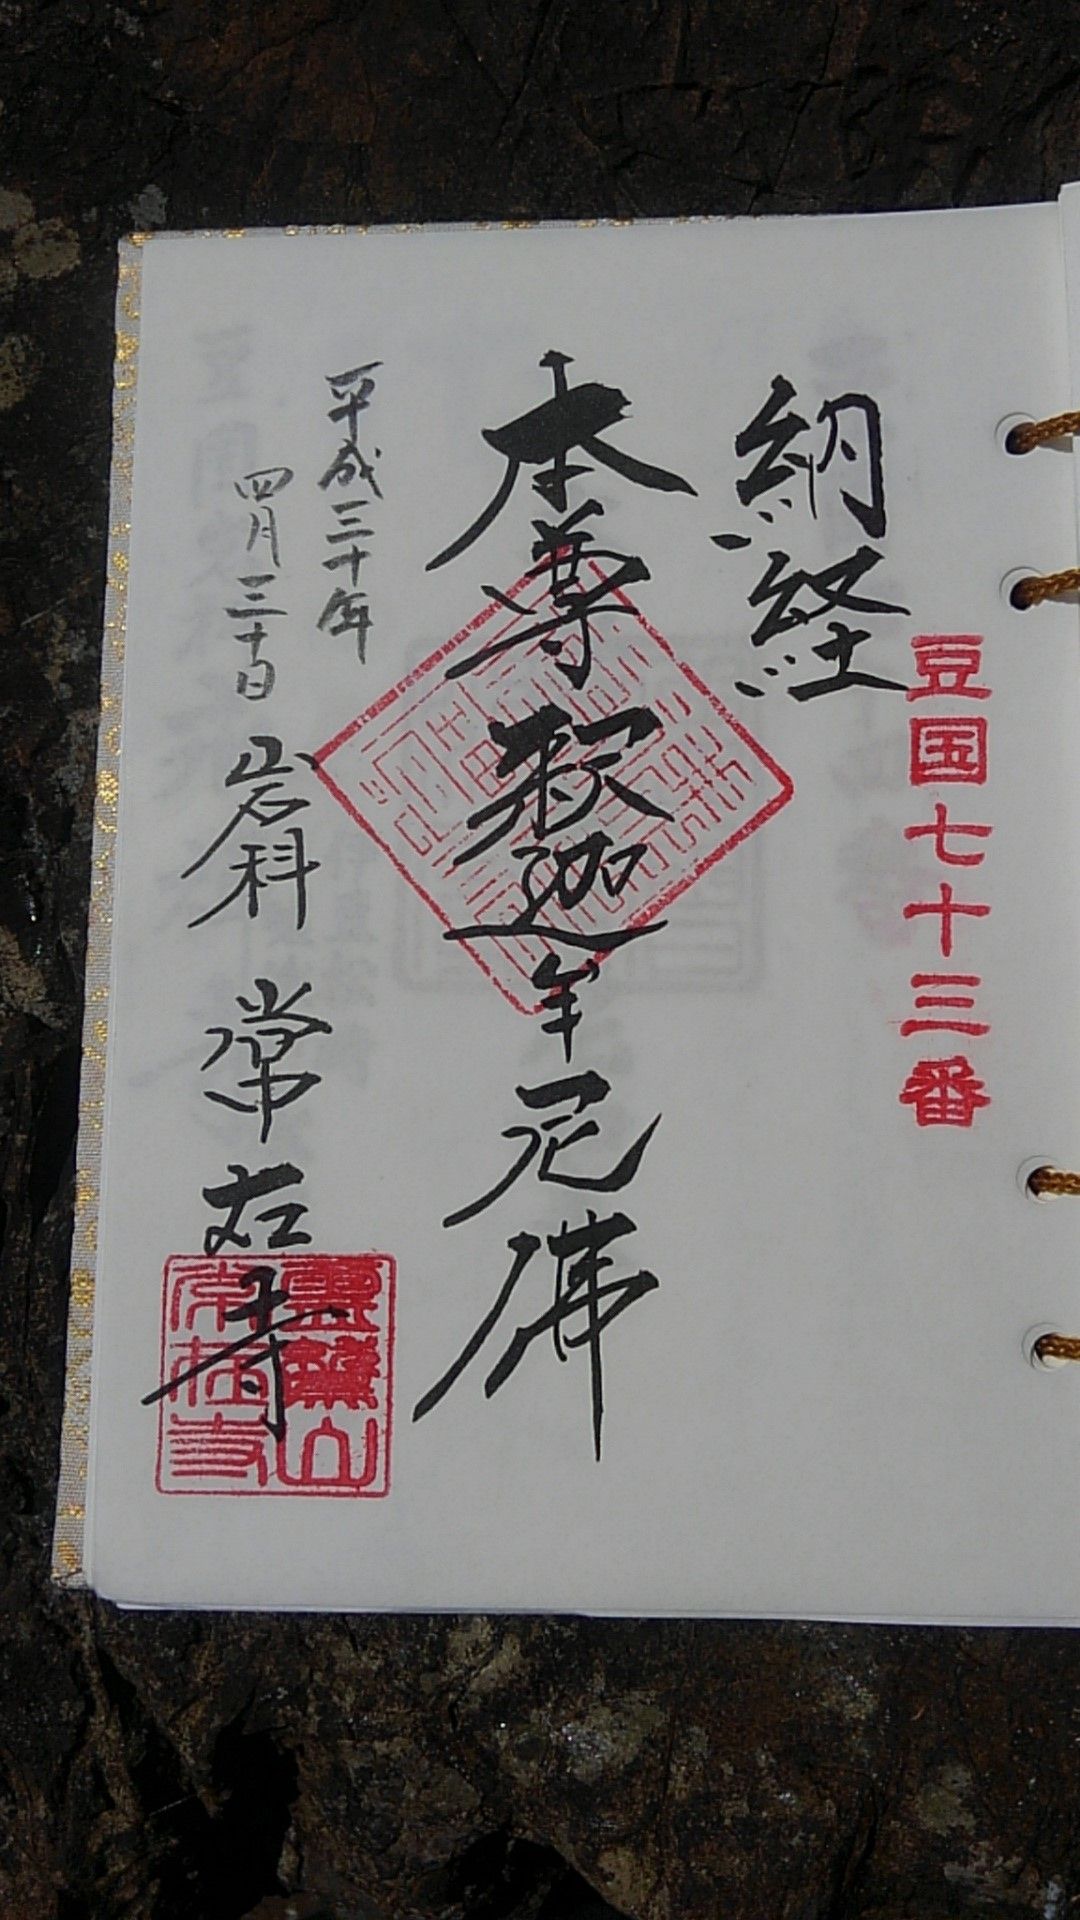 豆国七十三番
納経
本尊釈迦牟尼佛
平成三十年
四月三十日
岩科 常在寺
山
常在寺